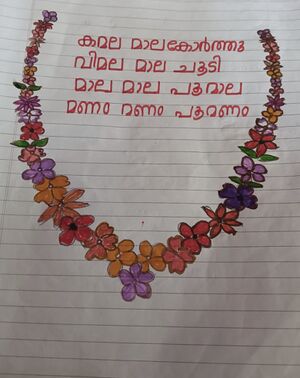 കമല മാലകോർത്തു
വിമല മാല ചൂടി
മാല മാല പൂമാല
മണം മണം പൂമണം